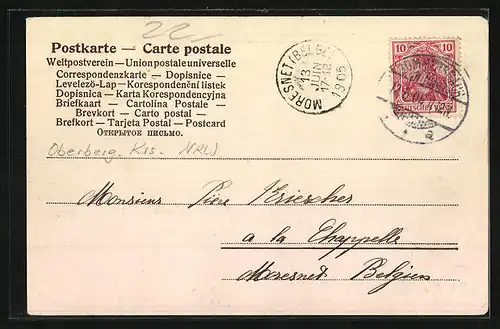 Postkarte — Carte postale
Weltpostverein — Union postale universelle
Correspondenzkarte — Dopisnice —
Levelező-Lap — Korespondenční listek
Dopisnica — Karta Korespondencyjna
Briefkaart — Cartolina Postale —
Brevkort — Carto postal —
Brefkort — Tarjeta Postal — Postcard
Открытое письмо.
MORESNET (BELGE)
13
JUIN
17-18
1905
10 10
Oberberg. Krs. NRW
Monsieur Piere Kriescher
a la Chappelle
Moresnet Belgien